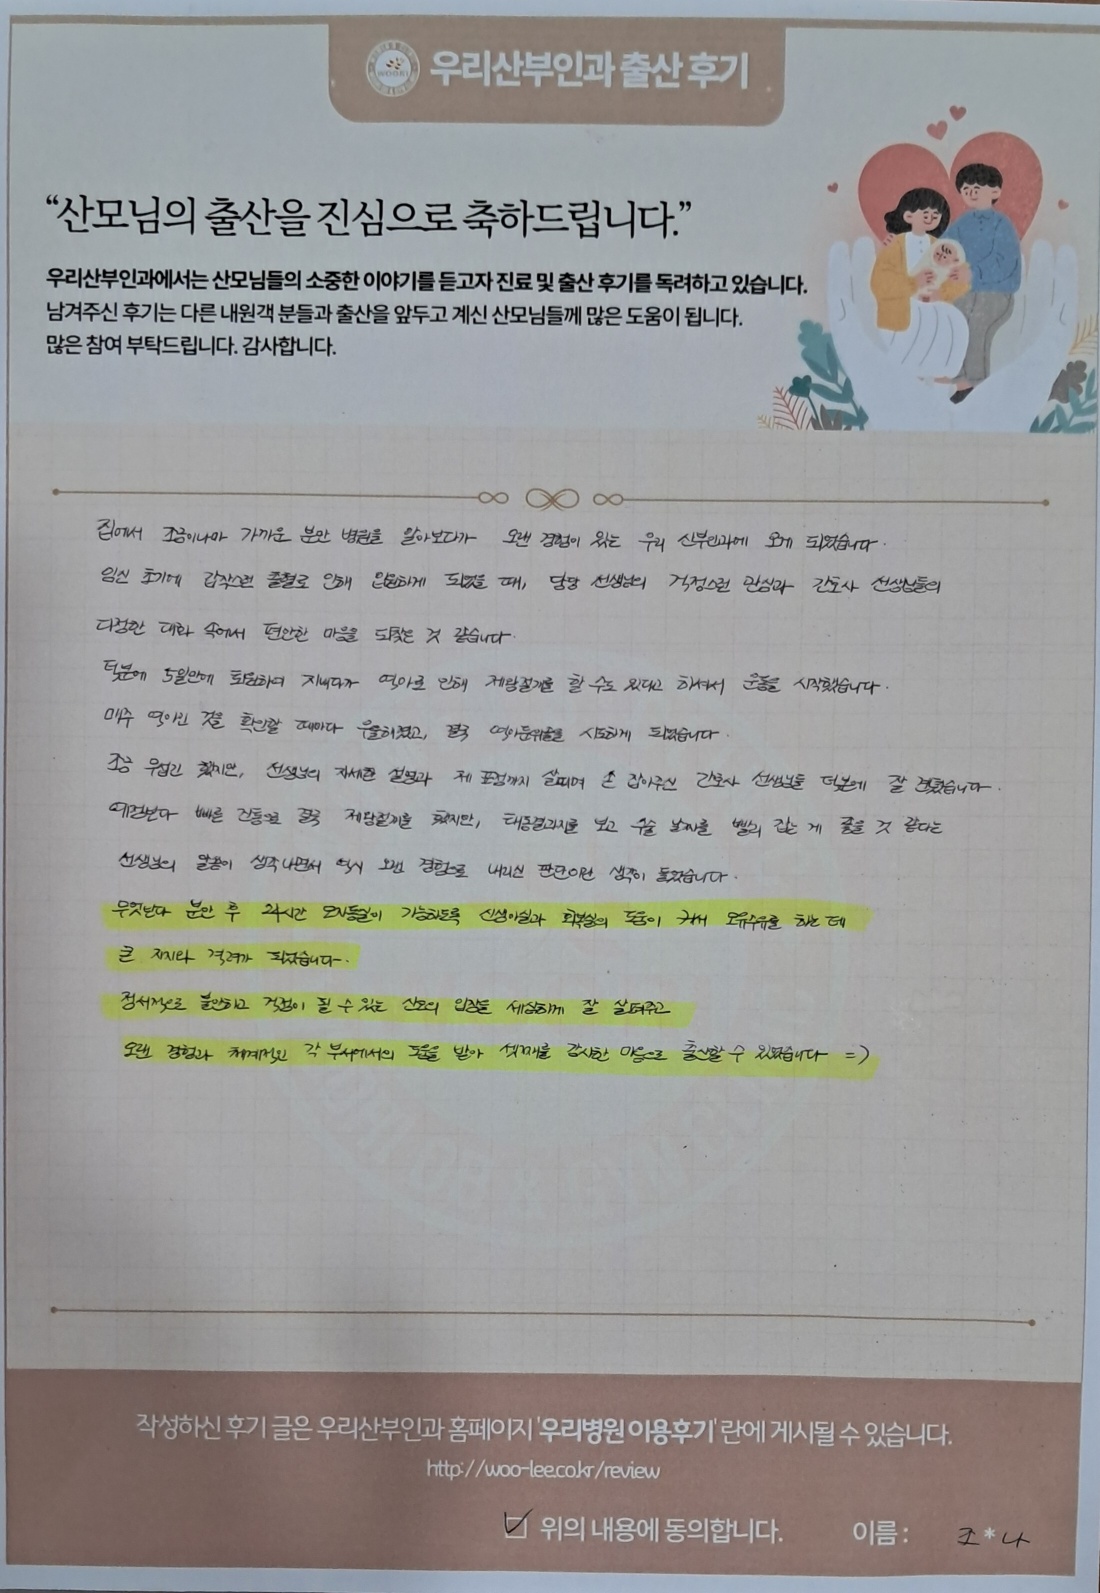 우리산부인과 출산 후기
“산모님의 출산을 진심으로 축하드립니다.”
우리산부인과에서는 산모님들의 소중한 이야기를 듣고자 진료 및 출산 후기를 독려하고 있습니다.
남겨주신 후기는 다른 내원객 분들과 출산을 앞두고 계신 산모님들께 많은 도움이 됩니다.
많은 참여 부탁드립니다. 감사합니다.
집에서 조금이나마 가까운 분만 병원을 알아보다가 오랜 경험이 있는 우리 산부인과에 오게 되었습니다.
임신 초기에 갑작스런 출혈로 인해 입원하게 되었을 때, 담당 선생님의 걱정스런 관심과 간호사 선생님들의
다정한 대화 속에서 편안한 마음을 되찾은 것 같습니다.
덕분에 5일만에 퇴원하여 지내다가 역아로 인해 제왕절개를 할 수도 있다고 하셔서 운동을 시작했습니다.
매주 역아인 것을 확인할 때마다 우울해졌고, 결국 역아둔위술을 시도하게 되었습니다.
조금 무섭긴 했지만, 선생님의 자세한 설명과 제 표정까지 살피며 손 잡아주신 간호사 선생님들 덕분에 잘 견뎠습니다.
예정보다 빠른 진통으로 결국 제왕절개를 했지만, 태동결과지를 보고 수술 날짜를 빨리 잡는 게 좋을 것 같다는
선생님의 말씀이 생각나면서 역시 오랜 경험으로 내리신 판단이란 생각이 들었습니다.
무엇보다 분만 후 24시간 모자동실이 가능하도록 신생아실과 회복실의 도움이 커서 모유수유를 하는 데
큰 지지와 격려가 되었습니다.
정서적으로 불안하고 걱정이 될 수 있는 산모의 입장을 세심하게 잘 살펴주고
오랜 경험과 체계적인 각 부서에서의 도움을 받아 셋째를 감사한 마음으로 출산할 수 있었습니다 =)
작성하신 후기 글은 우리산부인과 홈페이지 '우리병원 이용후기' 란에 게시될 수 있습니다.
http://woo-lee.co.kr/review
위의 내용에 동의합니다. 이름 : 조*나